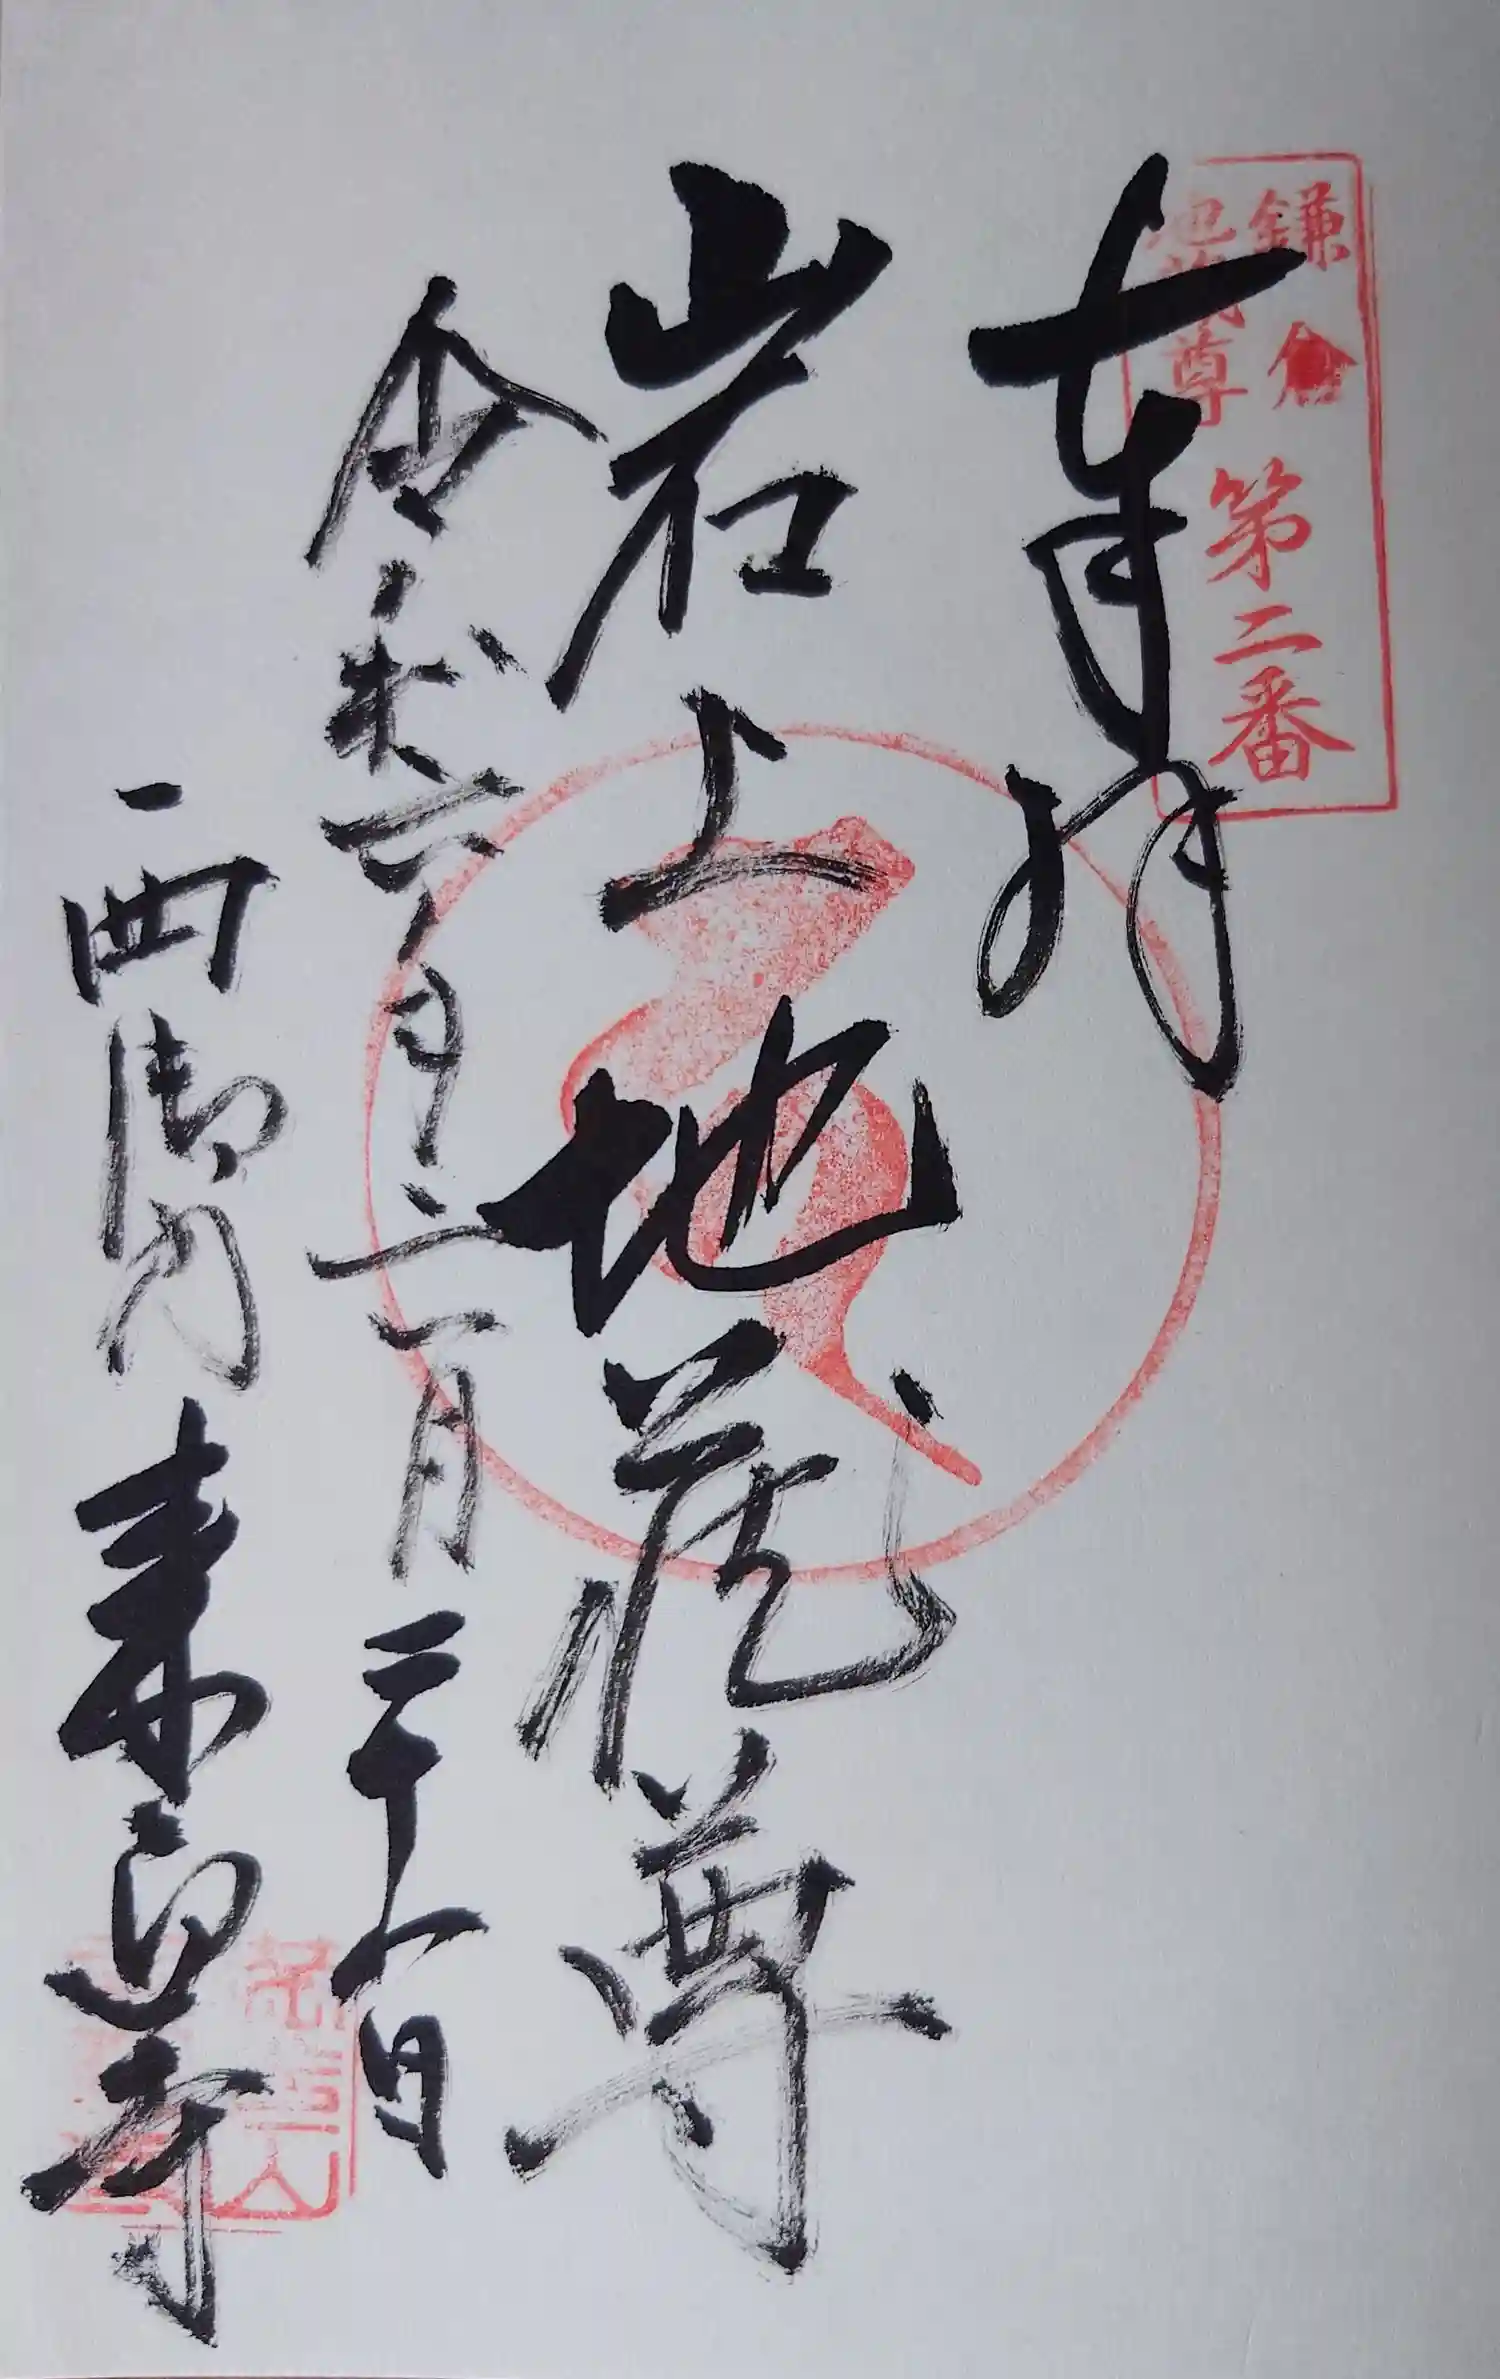 鎌倉
地蔵尊
第二番
奉拝
岩上地蔵尊
令和六年 月 日
西御門 来迎寺